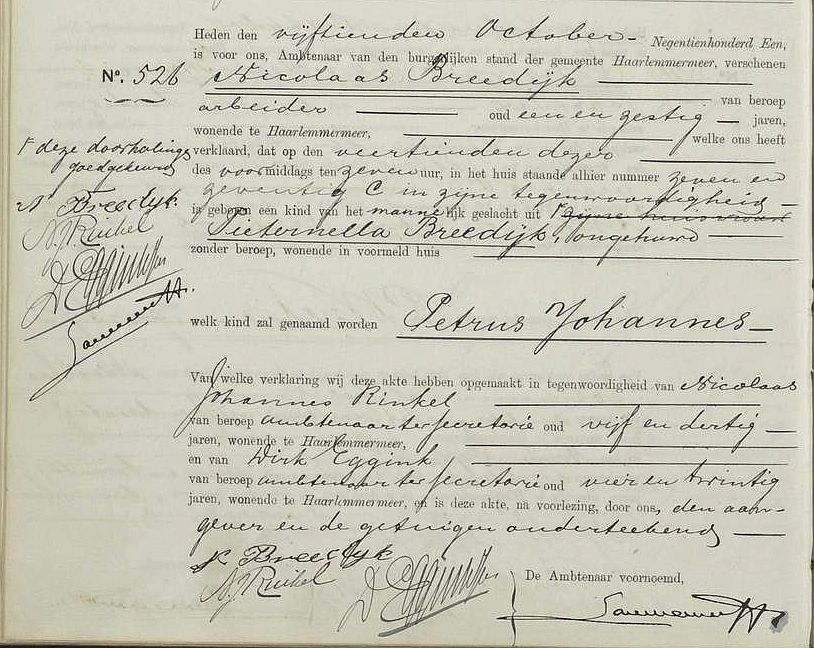 Heden den vijftienden October Negentienhonderd Een,
is voor ons, Ambtenaar van den burgerlijken stand der gemeente Haarlemmermeer, verschenen
No. 526 Nicolaas Breedijk
van beroep
arbeider oud een en zestig jaren,
wonende te Haarlemmermeer, welke ons heeft
verklaard, dat op den veertienden dezer
des voormiddags ten zeven uur, in het huis staande alhier nummer zeven en
zeventig C in zijne tegenwoordigheid
is geboren een kind van het mannelijk geslacht uit zijne huisvrouw
Pieternella Breedijk, ongehuwd
zonder beroep, wonende in voormeld huis
deze doorhaling
goedgekeurd
N Breedijk
N J Rinkel
D Eggink
welk kind zal genaamd worden Petrus Johannes
Van welke verklaring wij deze akte hebben opgemaakt in tegenwoordigheid van Nicolaas
Johannes Rinkel
van beroep ambtenaar ter secretarie oud vijf en dertig
jaren, wonende te Haarlemmermeer,
en van Dirk Eggink
van beroep ambtenaar ter secretarie oud vier en twintig
jaren, wonende te Haarlemmermeer, en is deze akte, na voorlezing, door ons, den aan-
gever en de getuigen onderteekend
N Breedijk
N J Rinkel
D Eggink
De Ambtenaar voornoemd,